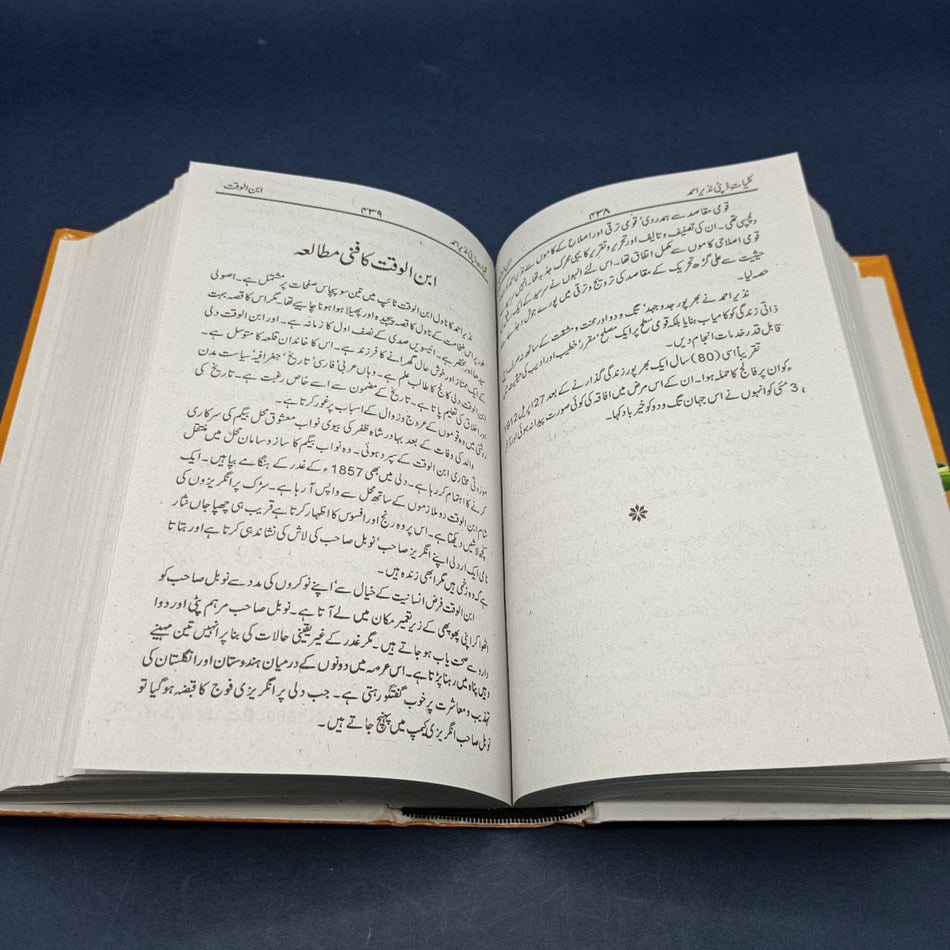 کلیات ڈپٹی نذیر احمد
۴۳۸
قومی مقاصد سے ہمدردی‘ قومی ترقی اور اصلاح کے کاموں سے
دلچسپی تھی۔ ان کی تصنیف و تالیف اور تحریر و تقریر کا یہی محرک جذبہ تھا۔ انہیں سرسید کے
قومی اصلاحی کاموں سے مکمل اتفاق تھا۔ اس لئے انہوں نے سرسید کے ایک
حیثیت سے علی گڑھ تحریک کے مقاصد کی ترویج و ترقی میں پورے جوش و
حصہ لیا۔
نذیر احمد نے بھرپور جدوجہد‘ تگ و دو اور محنت و مشقت کے ساتھ نہ صرف
ذاتی زندگی کو کامیاب بنایا بلکہ قومی سطح پر ایک مصلح‘ مقرر‘ خطیب اور ادیب کی حیثیت
قابل قدر خدمات انجام دیں۔
تقریباً اسی (80) سال ایک بھرپور زندگی گذارنے کے بعد 27؍ اپریل 1912
ء کو ان پر فالج کا حملہ ہوا۔ ان کے اس مرض میں افاقہ کی کوئی صورت پیدا نہ ہوئی اور
3 مئی کو انہوں نے اس جہان تگ و دو کو خیرباد کہا۔
ابن الوقت
۴۳۹
کلیات ڈپٹی نذیر احمد
ابن الوقت کا فنی مطالعہ
نذیر احمد کا ناول ابن الوقت ٹائپ میں تین سو پچاس صفحات پر مشتمل ہے۔ اصولی
طور پر اس ضخامت کے ناول کا قصہ پیچیدہ اور پھیلا ہوا ہونا چاہیے تھا۔ مگر اس کا قصہ بہت
سیدھا اور مختصر ہے۔ انیسویں صدی کے نصف اول کا زمانہ ہے۔ اور ابن الوقت دلی
کے ایک ممتاز اور خوش حال گھرانے کا فرزند ہے۔ اس کا خاندان قلعہ کا متوسل ہے۔
ابن الوقت دلی کالج کا طالب علم ہے۔ وہاں عربی‘ فارسی‘ تاریخ‘ جغرافیہ‘ سیاست مدن
اور اخلاق کی تعلیم پاتا ہے۔ تاریخ کے مضمون سے اسے خاص رغبت ہے۔ تاریخ کی
روشنی میں وہ قوموں کے عروج و زوال کے اسباب پر غور کرتا ہے۔
والد کی وفات کے بعد بہادر شاہ ظفر کی بیوی نواب معشوق محل بیگم کی سرکاری
موروثی مختاری ابن الوقت کے سپرد ہوئی۔ وہ نواب بیگم کا ساز و سامان محل میں منتقل
کرنے کا اہتمام کر رہا ہے۔ دلی میں بھی 1857ء کے غدر کے ہنگامے بپا ہیں۔ ایک
شام ابن الوقت دو ملازموں کے ساتھ محل سے واپس آ رہا ہے۔ سڑک پر انگریزوں کی
کچھ لاشیں دیکھتا ہے۔ اس پر وہ رنج اور افسوس کا اظہار کرتا ہے قریب ہی چھپا جاں نثار
نامی ایک اردلی اپنے انگریز صاحب‘ نوبل صاحب کی لاش کی نشاندہی کرتا ہے اور بتاتا
ہے کہ وہ زخمی ہیں مگر ابھی زندہ ہیں۔
ابن الوقت فرض انسانیت کے خیال سے‘ اپنے نوکروں کی مدد سے نوبل صاحب کو
اٹھوا کر اپنی پھوپھی کے زیر تعمیر مکان میں لے آتا ہے۔ نوبل صاحب مرہم پٹی اور دوا
دارو سے صحت یاب ہو جاتے ہیں۔ مگر غدر کے غیر یقینی حالات کی بنا پر انہیں تین مہینے
وہیں پناہ میں رہنا پڑتا ہے۔ اس عرصہ میں دونوں کے درمیان ہندوستان اور انگلستان کی
تہذیب و معاشرت پر خوب گفتگو رہتی ہے۔ جب دلی پر انگریزی فوج کا قبضہ ہو گیا تو
نوبل صاحب انگریزی کیمپ میں پہنچ جاتے ہیں۔